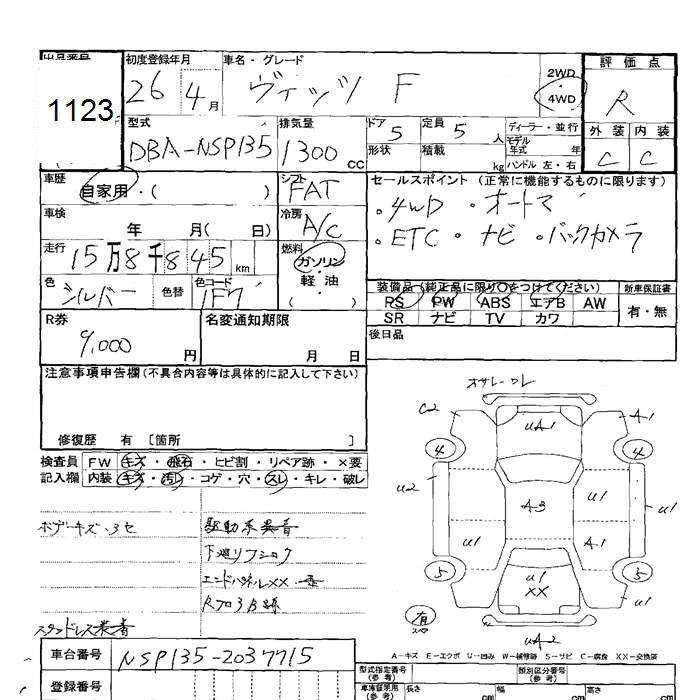 出品番号 初度登録年月 車名・グレード 2WD・4WD 評価点
1123 26 4月 ヴィッツ F R
型式 排気量 ドア 5 定員 5人 ディーラー・並行 外装 内装
DBA-NSP135 1300cc 形状 積載 kg モデル年式 年 ハンドル 左・右 C C
車歴 自家用・( ) シフト FAT セールスポイント (正常に機能するものに限ります)
車検 年 月( 日) 冷房 A/C ・4WD ・オートマ
走行 15万8千845km 燃料 ガソリン・軽油・( ) ・ETC・ナビ・バックカメラ
色 シルバー 色替 色コード 1F7 装備品(純正品に限り○をつけてください) 新車保証書
PS PW ABS エアB AW 有・無
SR ナビ TV カワ
R券 9,000円 名変通知期限 月 日 後日品
注意事項申告欄(不具合内容等は具体的に記入して下さい)
修復歴 有 〔箇所 〕
検査員 FW キズ・飛石・ヒビ割・リペア跡・×要
記入欄 内装 キズ・汚レ・コゲ・穴・スレ・キレ・破レ
駆動系異音
下廻リフショク
スタッドレス装着
C2 UA1 A1
4 4
U2 A3 U1
U1 A1
5 U1 XX 5 U1
有 UA2
A-キズ E-エクボ U-凹み W-補修跡 S-サビ C-腐食 XX-交換済
車台番号 NSP135-2037715 型式指定番号(参考) 類別区分番号(参考)
登録番号 車庫証明用(参考) 長さ cm 幅 cm 高さ cm